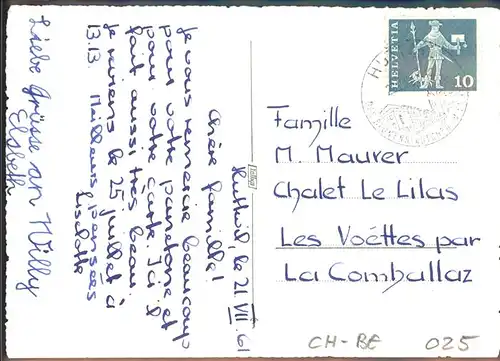 Huttwil, le 21. VII. 61
Chère famille!
Je vous remercie beaucoup
pour votre pardone et
pour votre carte. Ici il
fait aussi très beau.
Je reviens le 25 juillet à
13.13. Meilleurs pensées
Liselotte
Liebe Grüsse an Willy
Elsbeth
HELVETIA
10
Famille
M. Maurer
Chalet Le Lilas
Les Voëttes par
La Comballaz
CH-BE 025